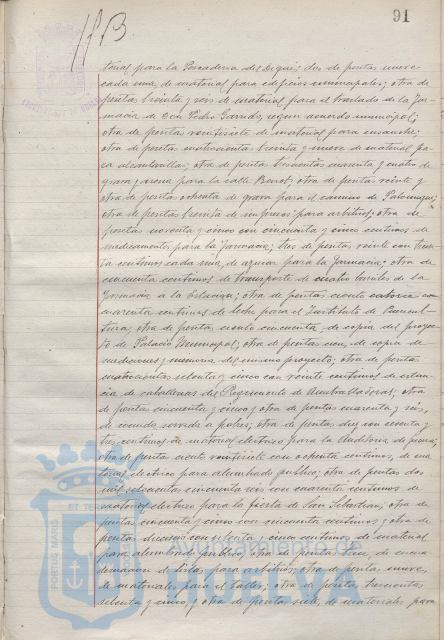 91
terial para la Pescaderia del Dique; dos de pesetas nueve
cada una, de material para edificios municipales; otra de
pesetas treinta y seis de material para el traslado de la Far-
macia de Don Pedro Garrido, según acuerdo municipal;
otra de pesetas veintisiete de material para ensanche;
otra de pesetas cuatrocientas treinta y nueve de material pa
ra alcantarillas; otra de pesetas trescientas cuarenta y cuatro de
grava y arena para la calle Berot; otra de pesetas veinte y
otra de pesetas ochenta de grava para el camino de
otra de pesetas treinta de impresos para arbitrios; otra de
pesetas noventa y cinco con cincuenta y cinco centimos de
medicamentos para la Farmacia; tres de pesetas veinte con trein-
ta centimos cada una, de azucar para la Farmacia; otra de
cincuenta centimos de transporte de cuatro barriles de la
Farmacia a la Estacion; otra de pesetas ciento catorce con
cuarenta centimos de leche para el Instituto de Puericul-
tura; otra de pesetas ciento cincuenta, de copia del proyec-
to de Palacio Municipal; otra de pesetas cien, de copia de
mediciones y memoria del mismo proyecto; otra de pesetas
cuatrocientas setenta y cinco con veinte centimos de estan-
cia de caballerias del Regimiento de Ametralladoras; otra
de pesetas cincuenta y cinco y otra de pesetas cuarenta y seis,
de comida servida a pobres; otra de pesetas diez con cuenta y
tres centimos de material electrico para la Audiencia de
otra de pesetas ciento veintisiete con ochenta centimos, de ma
terial electrico para alumbrado publico; otra de pesetas dos
mil setecientas cincuenta y seis con cuarenta centimos de
material electrico para la fiesta de San Sebastian; otra de
pesetas cincuenta y cinco con cincuenta centimos y otra de
pesetas con setenta y cinco centimos de material
para alumbrado publico; otra de pesetas doce, de encua
dernacion de listas para arbitrios; otra de pesetas nueve,
de materiales para el taller; otra de pesetas trescientas
setenta y cinco y otra de pesetas seis, de materiales para
PORTUS MARIS
ET TERRAE
Ayuntamiento de
HUELVA